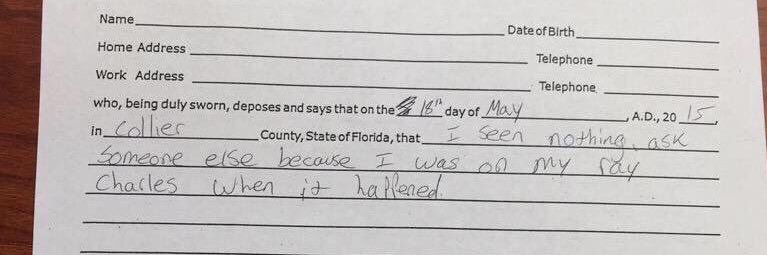 Name
Date of Birth
Home Address
Telephone
Work Address
Telephone
who, being duly sworn, deposes and says that on the 18th day of May, A.D., 2015,
in Collier County, State of Florida, that I seen nothing, ask
Someone else because I was on my ray
Charles when it happened.